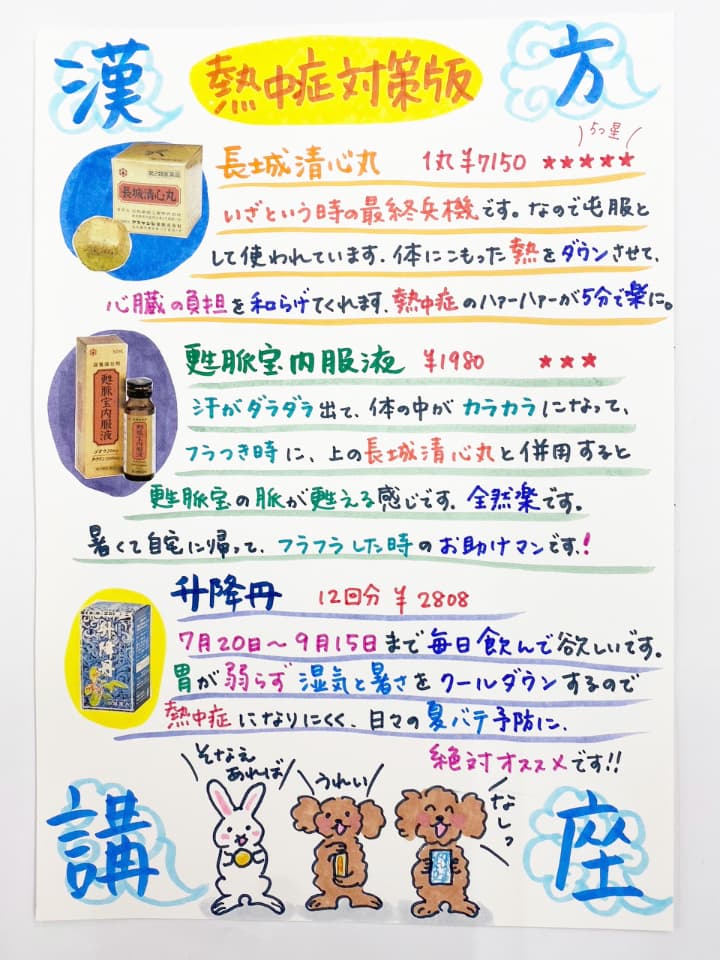 漢方
熱中症対策版
5つ星
長城清心丸 1丸¥7150 ★★★★★
いざという時の最終兵機です。なので屯服と
して使われています。体にこもった熱をダウンさせて、
心臓の負担を和らげてくれます。熱中症のハァーハァーが5分で楽に。
第2類医薬品
長城清心丸
甦脈宝内服液 ¥1980 ★★★
汗がダラダラ出て、体の中がカラカラになって、
フラつき時に、上の長城清心丸と併用すると
甦脈宝の脈が甦える感じです。全然楽です。
暑くて自宅に帰って、フラフラした時のお助けマンです!
甦脈宝内服液
升降丹 12回分 ¥2808
7月20日〜9月15日まで毎日飲んで欲しいです。
胃が弱らず湿気と暑さをクールダウンするので
熱中症になりにくく、日々の夏バテ予防に、
絶対オススメです!!
升降丹
そなえ
あれば
うれい
なしっ
講座